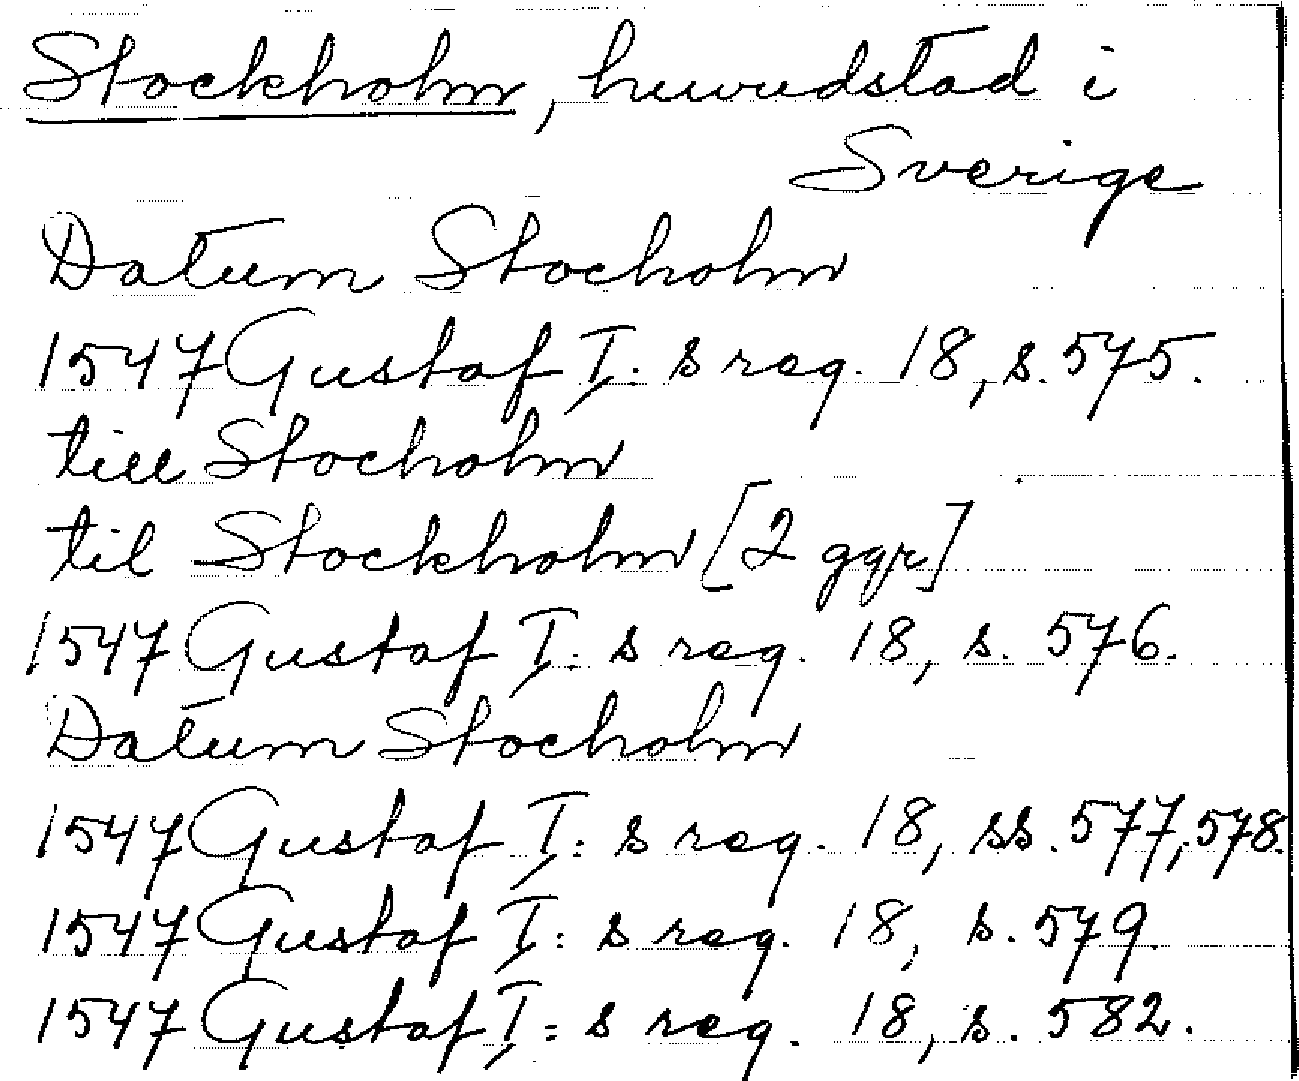 Stockholm, huvudstad i
Sverige
Datum Stocholm
1547 Gustaf I: s reg. 18, s. 575.
till Stocholm
til Stockholm [2 ggr]
1547 Gustaf I: s reg. 18, s. 576.
Datum Stocholm
1547 Gustaf I: s reg. 18, ss. 577, 578.
1547 Gustaf I: s reg. 18, s. 579.
1547 Gustaf I: s reg. 18, s. 582.